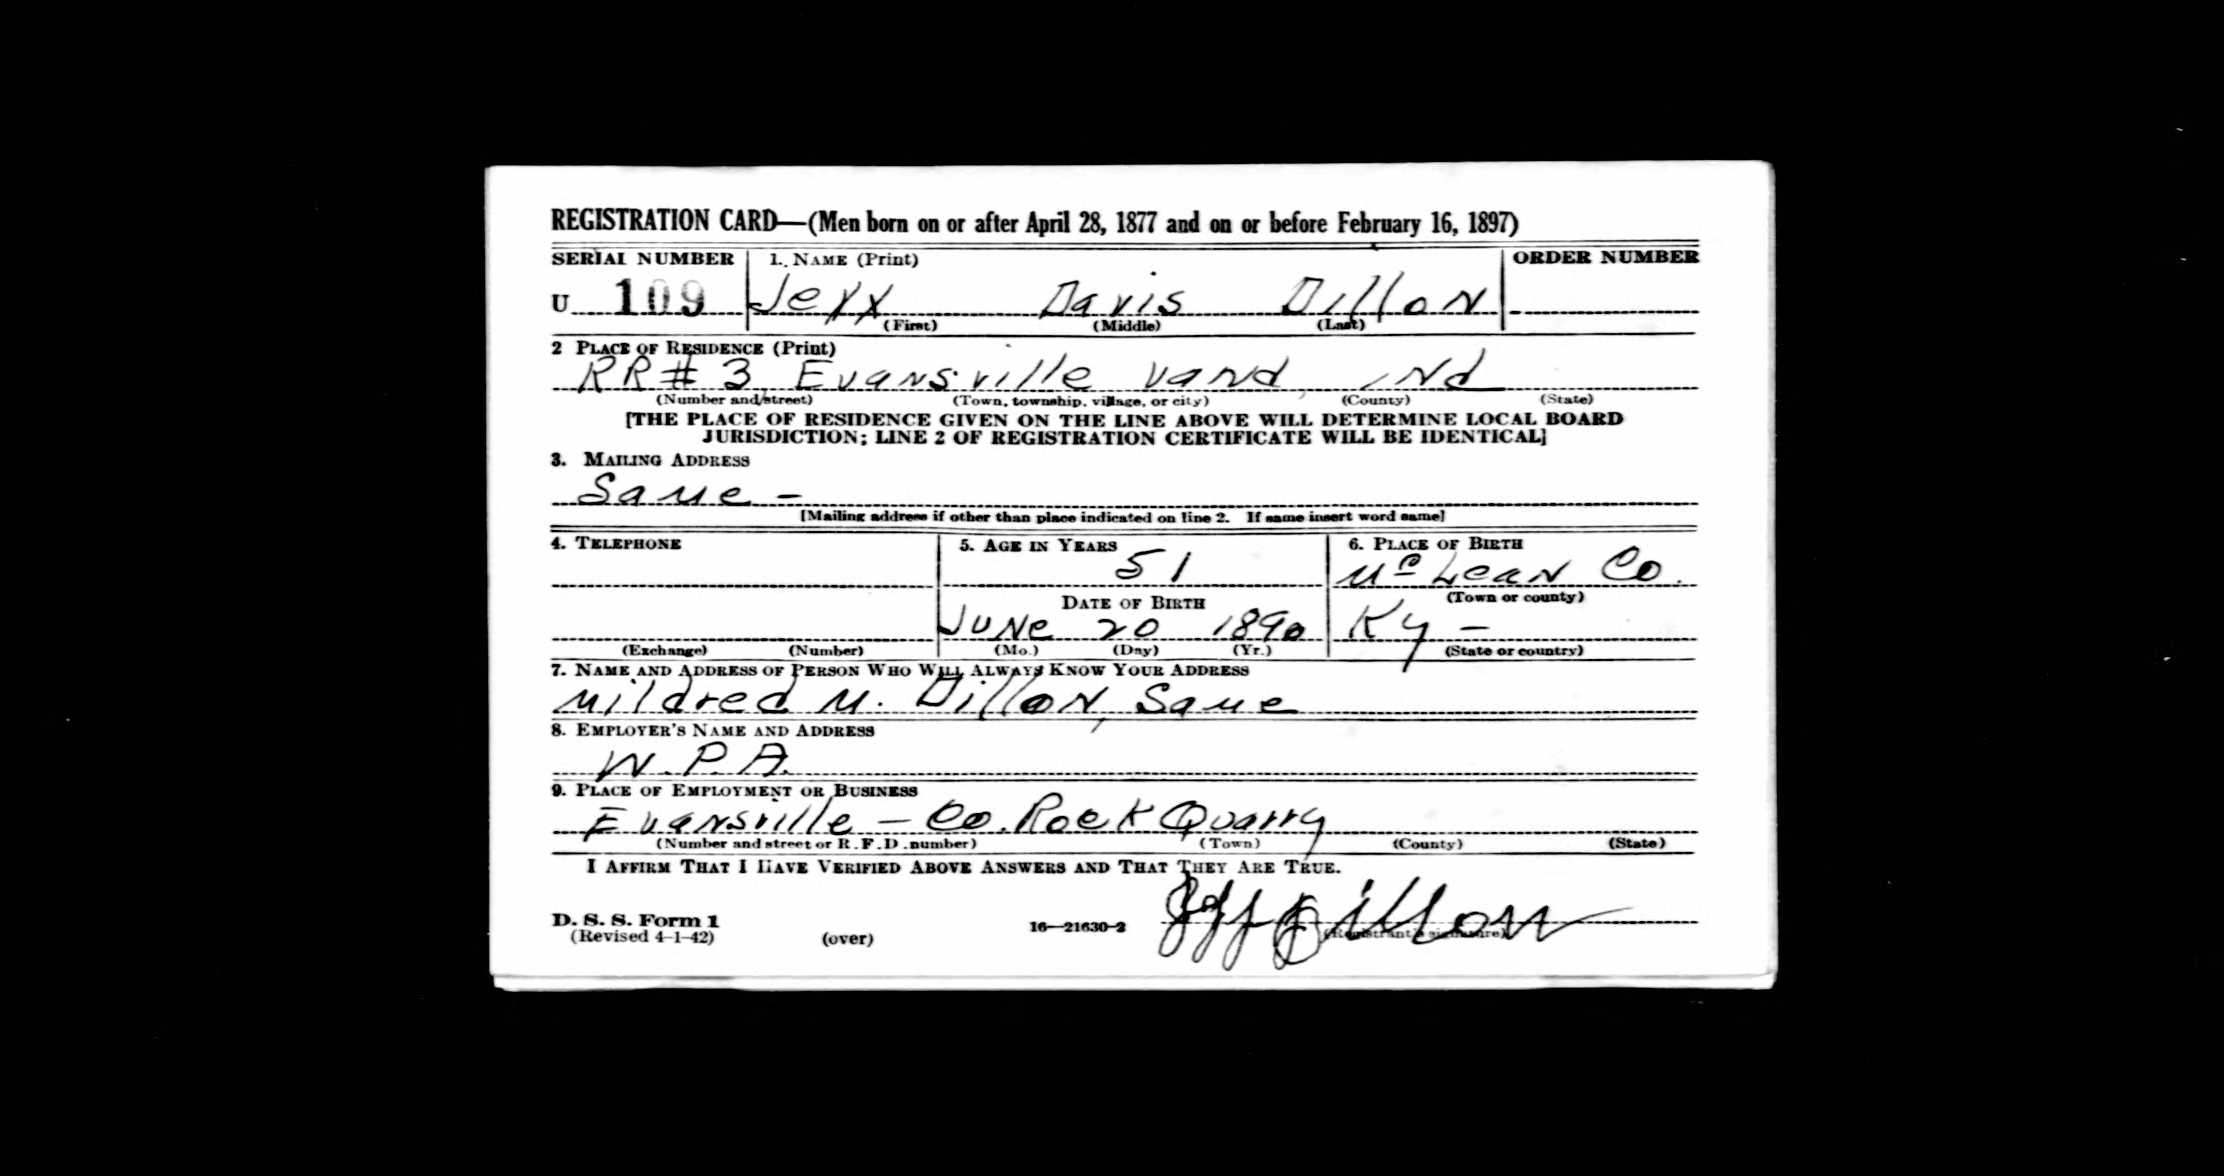 REGISTRATION CARD—(Men born on or after April 28, 1877 and on or before February 16, 1897)
SERIAL NUMBER 1. NAME (Print) ORDER NUMBER
U 109 Jeff Davis Dillon
(First) (Middle) (Last)
2 PLACE OF RESIDENCE (Print)
RR# 3 Evansville Vand, Ind
(Number and street) (Town, township, village, or city) (County) (State)
[THE PLACE OF RESIDENCE GIVEN ON THE LINE ABOVE WILL DETERMINE LOCAL BOARD
JURISDICTION; LINE 2 OF REGISTRATION CERTIFICATE WILL BE IDENTICAL]
3. MAILING ADDRESS
Same –
[Mailing address if other than place indicated on line 2. If same insert word same]
4. TELEPHONE 5. AGE IN YEARS 6. PLACE OF BIRTH
51 Mc Lean Co.
DATE OF BIRTH (Town or county)
June 20 1890 Ky –
(Exchange) (Number) (Mo.) (Day) (Yr.) (State or country)
7. NAME AND ADDRESS OF PERSON WHO WILL ALWAYS KNOW YOUR ADDRESS
Mildred M. Dillon, Same
8. EMPLOYER'S NAME AND ADDRESS
W.P.A.
9. PLACE OF EMPLOYMENT OR BUSINESS
Evansville – Co. Rock Quarry
(Number and street or R.F.D. number) (Town) (County) (State)
I AFFIRM THAT I HAVE VERIFIED ABOVE ANSWERS AND THAT THEY ARE TRUE.
Jeff Dillon
D. S. S. Form 1
(Revised 4-1-42) (over) 16—21630-2 (Registrant's signature)